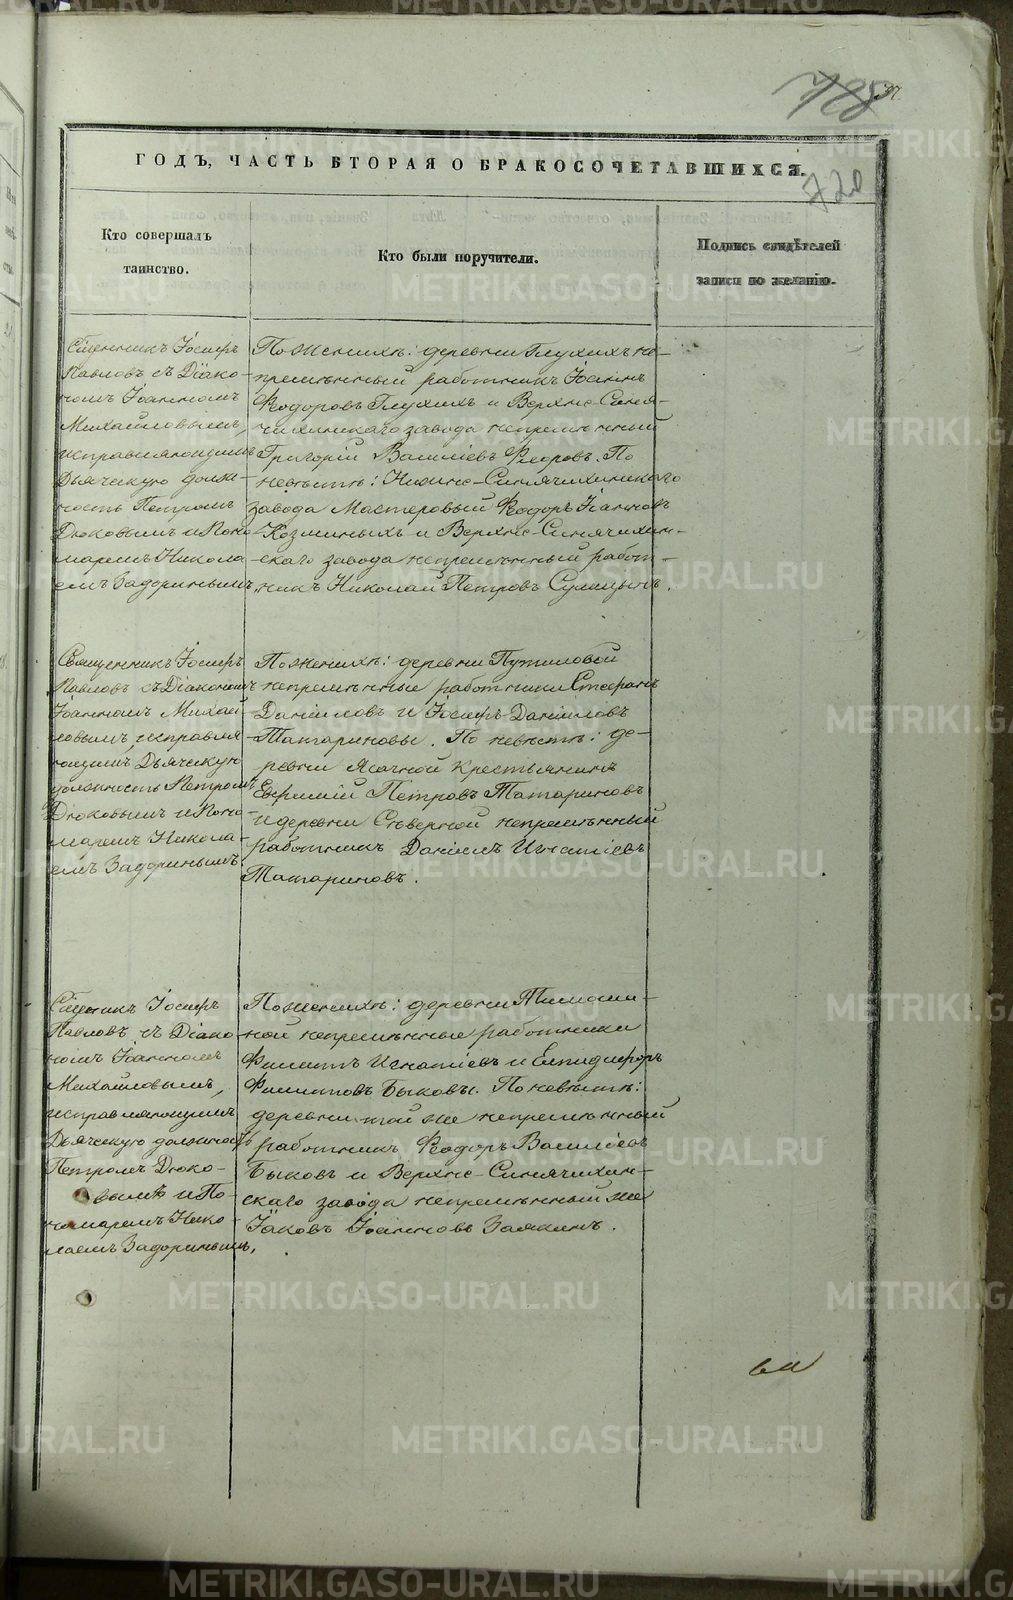 ГОДЪ, ЧАСТЬ ВТОРАЯ О БРАКОСОЧЕТАВШИХСЯ.
728
Кто совершалъ
таинство.
Кто были поручители.
Подпись свидѣтелей
записи по желанію.
Сщенникъ Іосифъ
Павловъ съ Діако-
номъ Іоанномъ
Михайловымъ,
исправляющимъ
Дьяческую долж-
ность Петромъ
Дюковымъ и Поно
маремъ Никола-
емъ Задоринымъ,
По женихѣ: деревни Глухихъ не-
премѣнный работникъ Іоаннъ
Ѳедоровъ Глухихъ и Верхне-Синя-
чихинскаго завода непремѣнный
Григорій Василіевъ Флоровъ. По
невѣстѣ: Нижне-Синячихинскаго
завода Мастеровый Ѳедоръ Іоанновъ
Козминыхъ и Верхне-Синячихин-
скаго завода непремѣнный работ-
никъ Николай Петровъ
Священникъ Іосифъ
Павловъ съ Діакономъ
Іоанномъ Михай
ловымъ исправля
ющимъ Дьяческую
должность Петромъ
Дюковымъ и Поно
маремъ Никола-
емъ Задоринымъ
По женихѣ: деревни Путиловой
непремѣнные работники Стефанъ
Даниловъ и Іосифъ Даниловъ
Татариновы. По невѣстѣ: де-
ревни Ясачной крестьянинъ
Евфимій Петровъ Татариновъ
и деревни Сѣверной непремѣнный
работникъ Даніилъ Игнатіевъ
Татариновъ.
Сщеникъ Іосифъ
Павловъ съ Діако-
номъ Іоанномъ
Михайловымъ,
исправляющимъ
Дьяческую должность
Петромъ Дюко-
вымъ и По-
номаремъ Нико-
лаемъ Задоринымъ,
По женихѣ: деревни Тимоши-
ной непремѣнные работники
Филиппъ Игнатіевъ и Елпидифоръ
Филипповъ Быковы. По невѣстѣ:
деревни той же непремѣнный
работникъ Ѳедоръ Василіевъ
Быковъ и Верхне-Синячихин-
скаго завода непремѣнный же
Іаковъ Іоанновъ Заякинъ.
METRIKI.GASO-URAL.RU